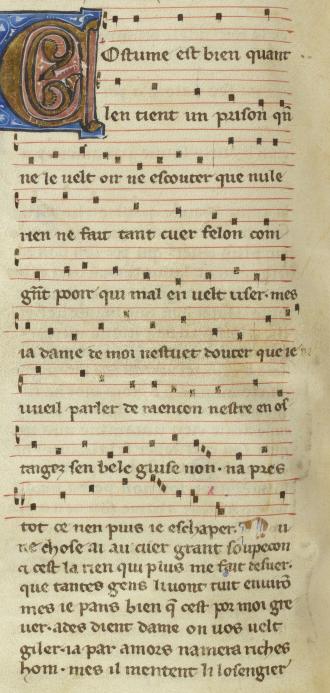 Costume est bien quant
len tient un prison qñ
ne le velt oir ne escouter que nule
rien ne fait tant cuer felon com
gñt pooir qui mal en velt user· mes
ia dame de moi nestuet douter que ie
vueil parler de raencon nestre en os
tagez sen bele guise non· na pres
tot ce nen puis ie eschaper.
ne chose ai au cuer grant soupecon
ci cest la rien qui plus me fait desver·
que tantes gens li vont tuit enuirõ
mes ie pans bien q̃ cest por moi gre
uer· ades dient dame on vos velt
giler· ia par amors namera riches
hom· mes il mentent li losengier